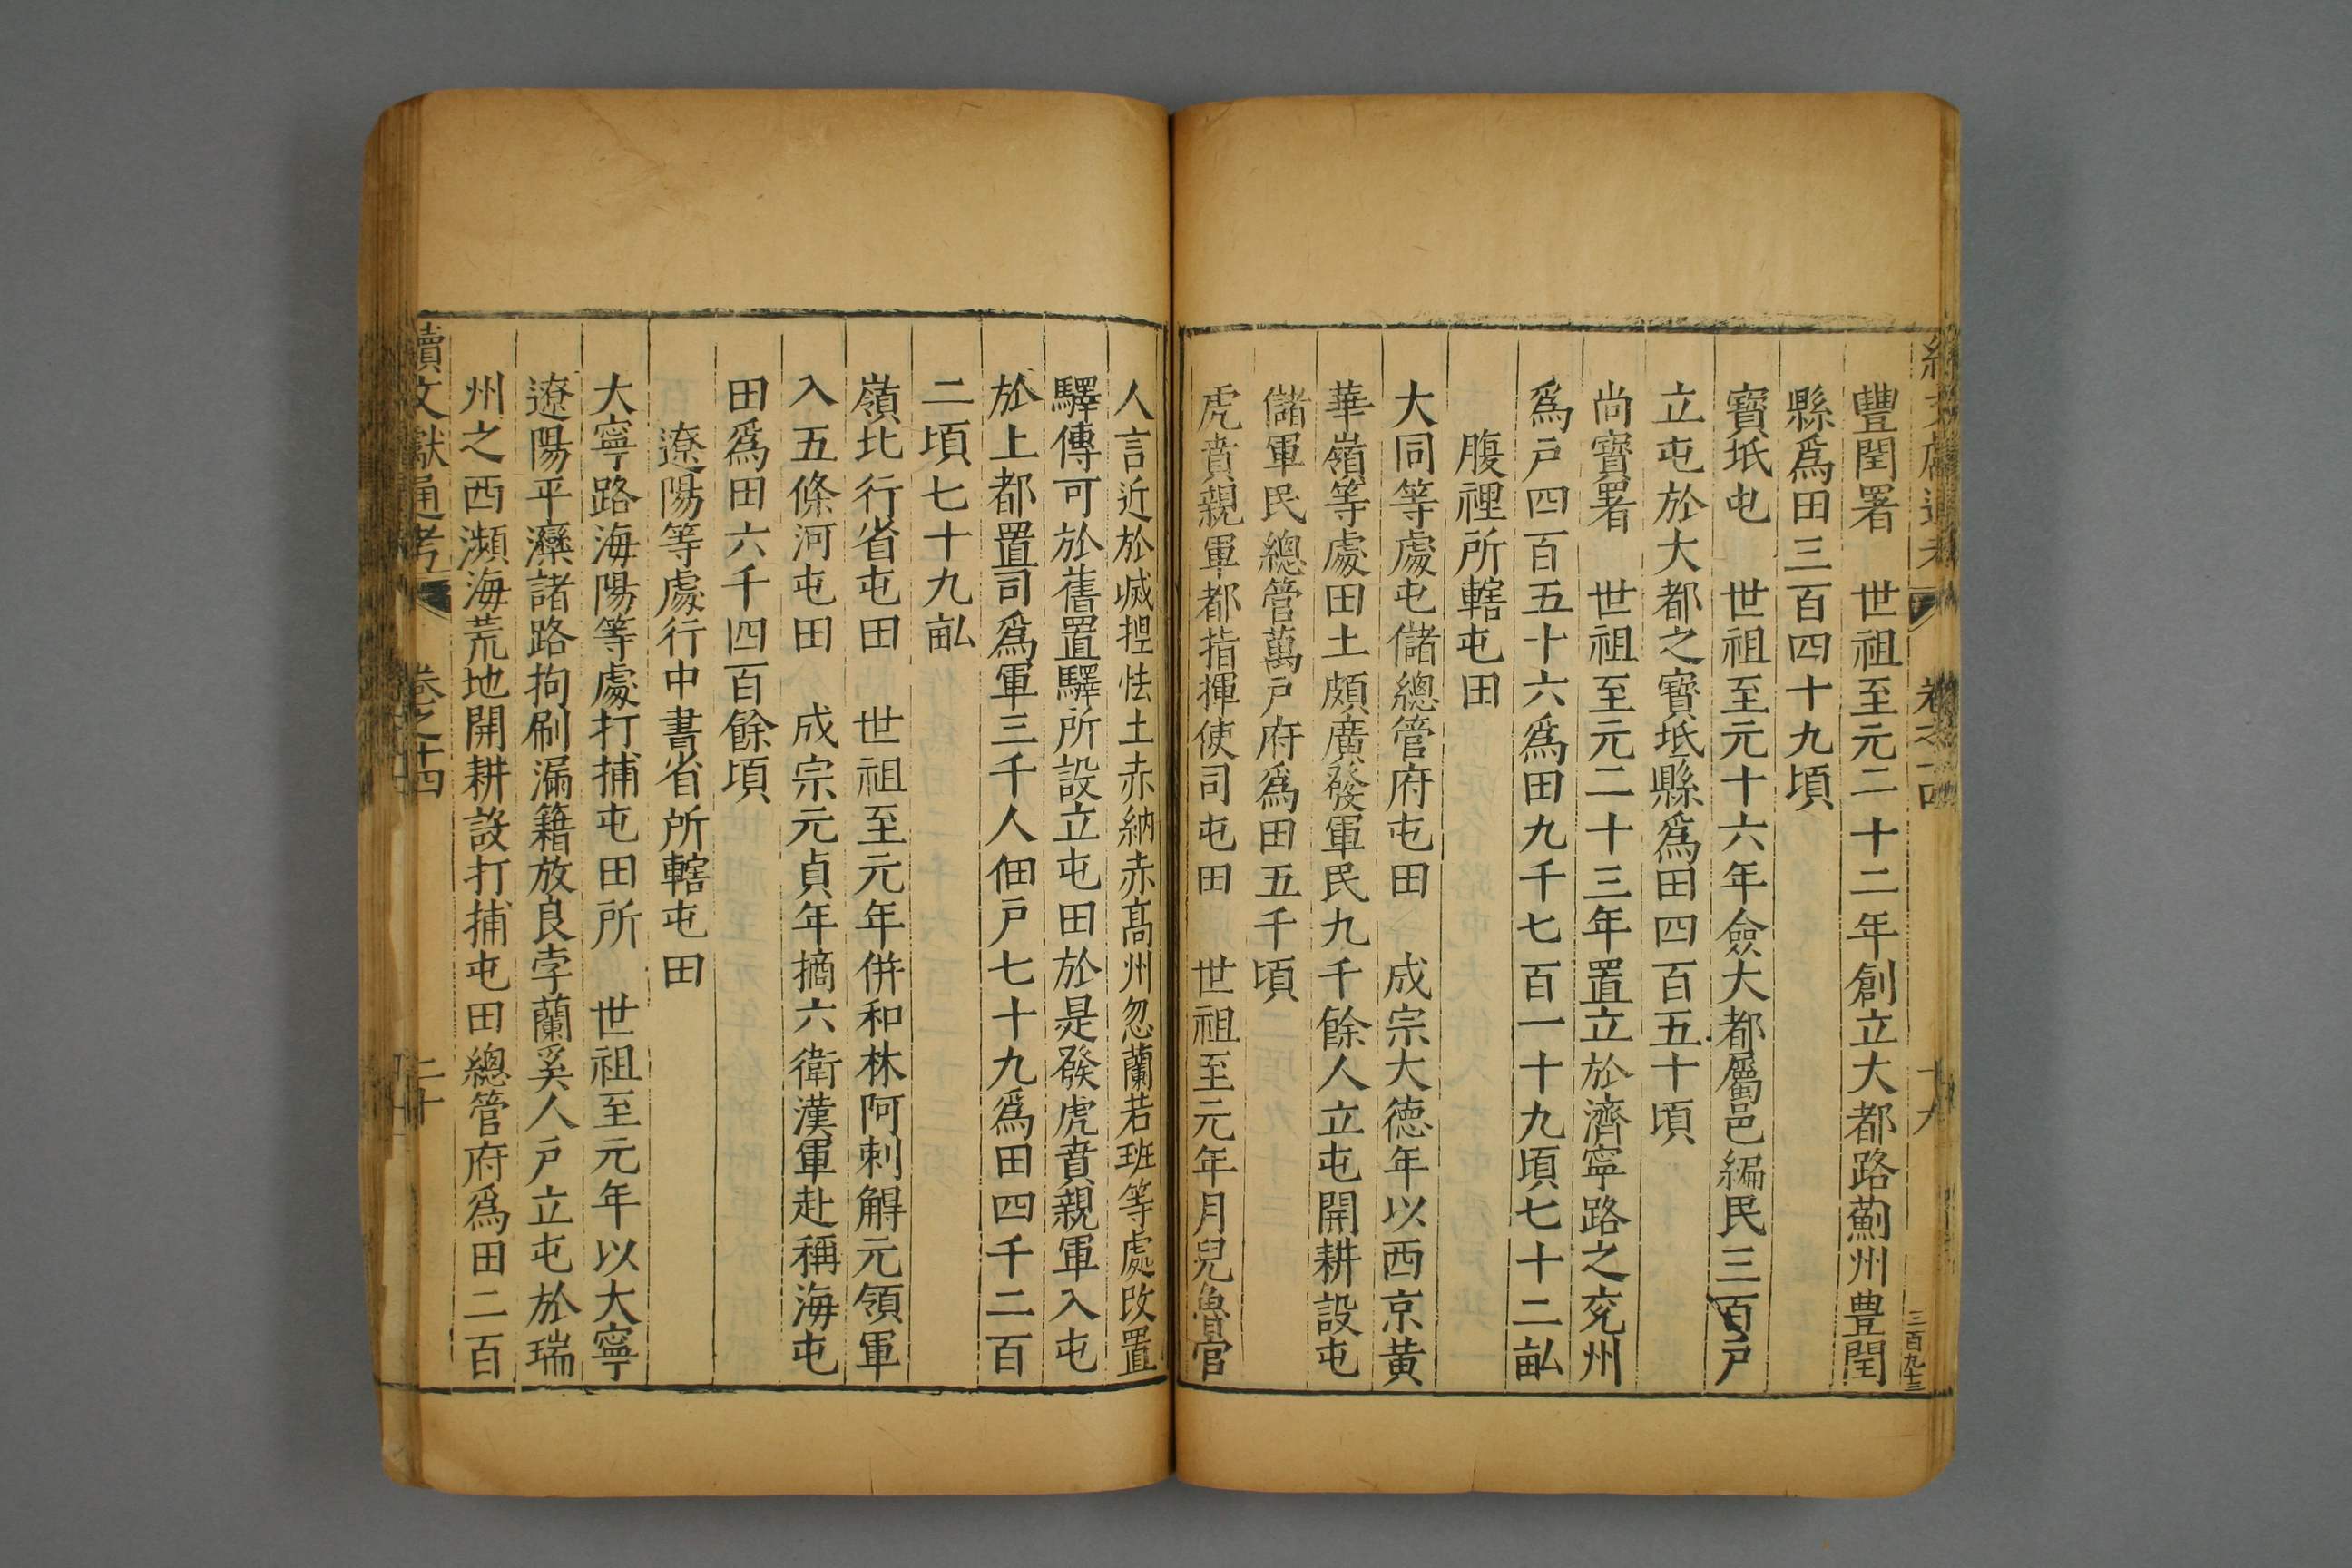 續文獻通考 卷之十四 十九 三百九十三
豐閏署 世祖至元二十二年創立大都路薊州豊閏
縣爲田三百四十九頃
寳坻屯 世祖至元十六年僉大都屬邑編民三百戸
立屯於大都之寳坻縣爲田四百五十頃
尚寳署 世祖至元二十三年置立於濟寧路之兖州
爲戸四百五十六爲田九千七百一十九頃七十二畆
腹裡所轄屯田
大同等處屯儲總管府屯田 成宗大德年以西京黄
華嶺等處田土頗廣發軍民九千餘人立屯開耕設屯
儲軍民總管萬戸府爲田五千頃
虎賁親軍都指揮使司屯田 世祖至元年月兒魯官
人言近於㓕揑怯土赤納赤髙州忽蘭若班等處改置
驛傳可於舊置驛所設立屯田於是發虎賁親軍入屯
於上都置司爲軍三千人佃戸七十九爲田四千二百
二頃七十九畆
嶺北行省屯田 世祖至元年併和林阿剌觧元領軍
入五條河屯田 成宗元貞年摘六衛漢軍赴稱海屯
田爲田六千四百餘頃
遼陽等處行中書省所轄屯田
大寧路海陽等處打捕屯田所 世祖至元年以大寧
遼陽平灤諸路拘刷漏籍放良孛蘭奚人戸立屯於瑞
州之西瀕海荒地開耕設打捕屯田總管府爲田二百
續文獻通考 卷之十四 二十